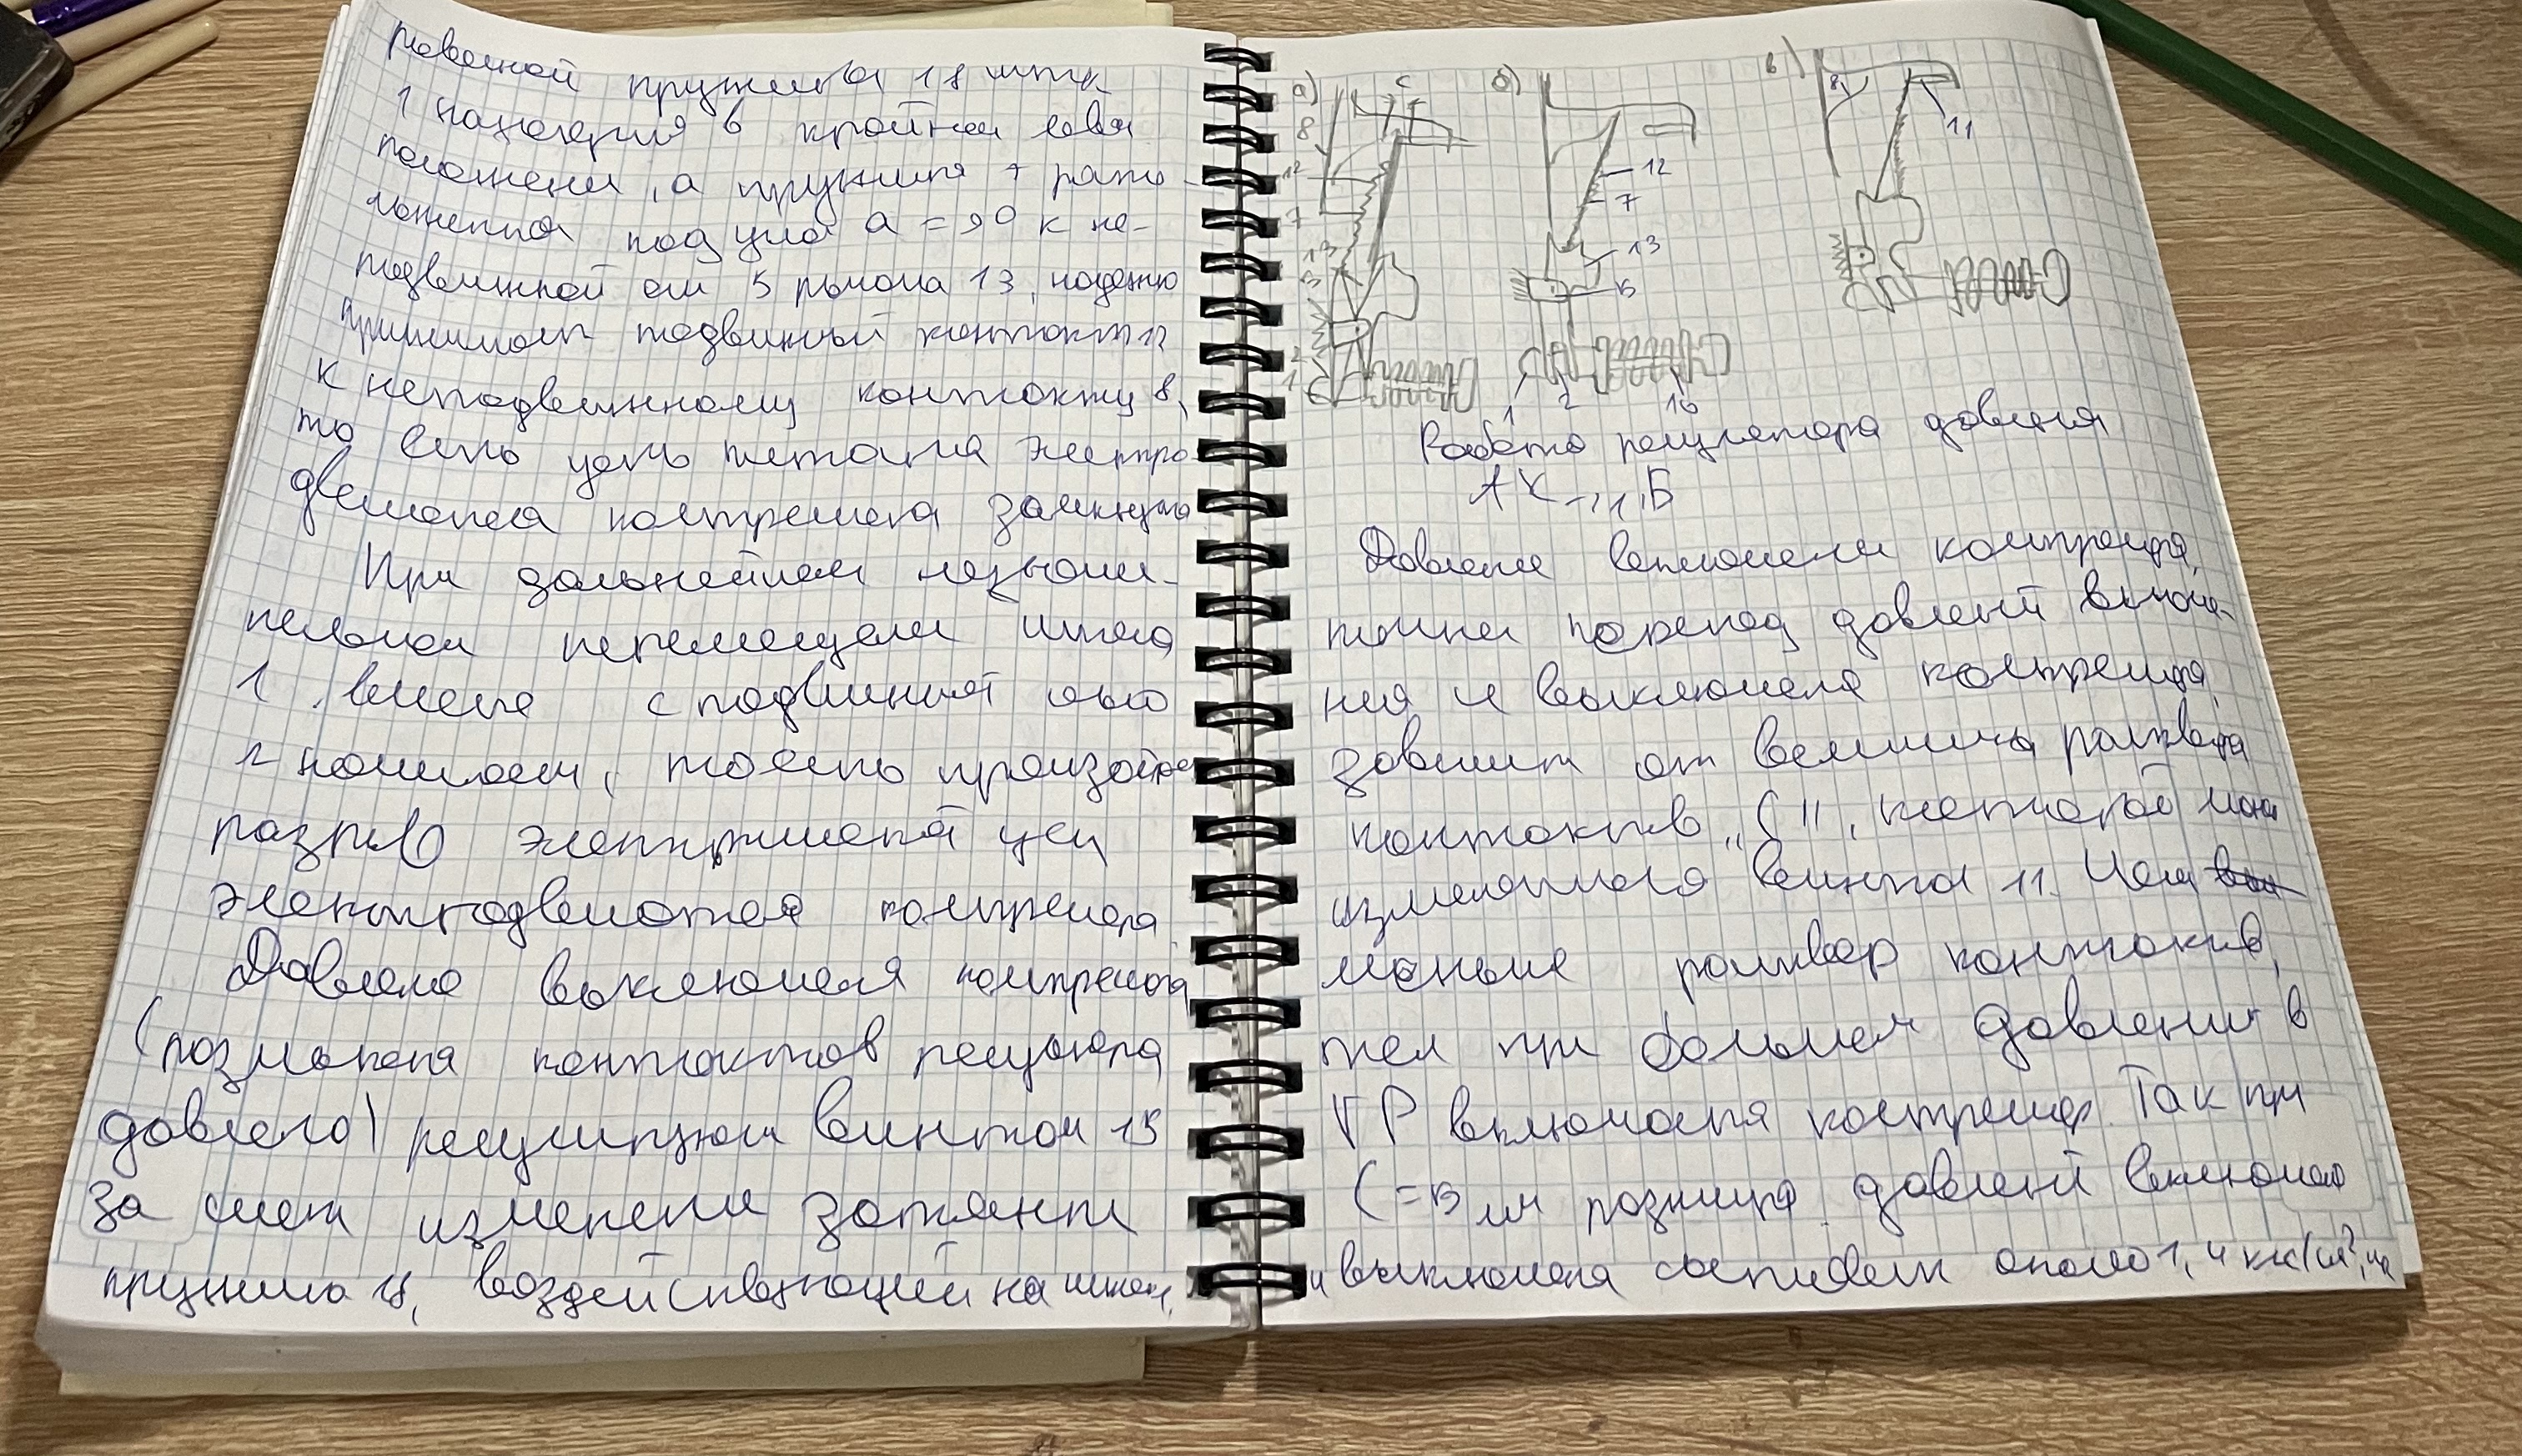 пружина 18 шток
1 находится в крайнем левом
положении, а пружина 7 распо-
ложена под углом а = 90 к не-
подвижной оси 5 рычага 13, надежно
прижимает подвижный контакт 12
к неподвижному контакту 8,
то есть цепь питания электро-
двигателя компрессора замкнута
При дальнейшем незначи-
тельном перемещении штока
1 вместе с подвижной осью
2 , то есть произойдет
разрыв электрической цепи
электродвигателя компрессора
Давление выключения компрессора
(размыкания контактов регулятора
давления) регулируют винтом 15
за счет изменения затяжки
пружины 18, воздействующей на шток,
а) с б) в)
8 8 11
12 12
7 7
13 13
5 5
2
1 1 2 16
Работа регулятора давления
АК-11Б
Давление включения компрессора,
перепад давлений включе-
ния и выключения компрессора,
зависит от величины раствора
контактов "С", которой можно
изменяться винтом 11. Чем
меньше раствор контактов,
тем при большем давлении в
ГР включается компрессор. Так при
С=5 мм разница давлений включения
и выключения составляет около 1,4 кгс/см²,